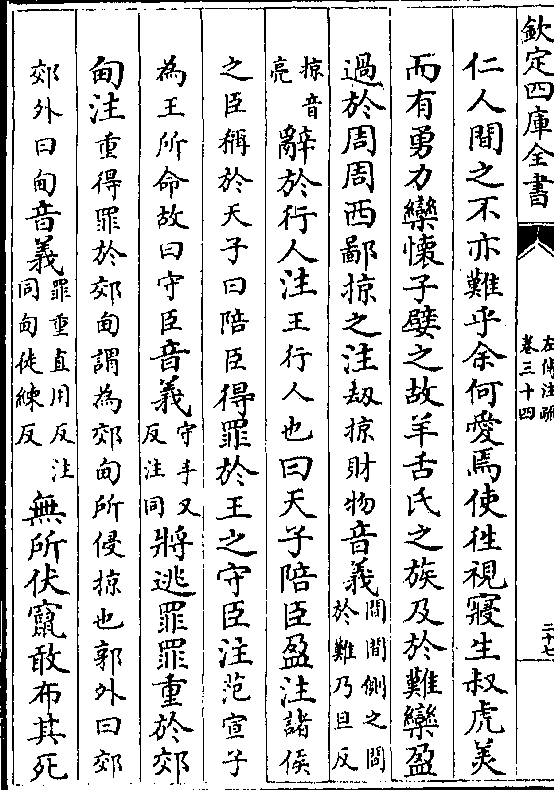 欽定四庫全書
左傳注疏
卷三十四
二十七
仁人間之不亦難乎余何愛焉使徃視寢生叔虎美
而有勇力欒懷子嬖之故羊舌氏之族及於難欒盈
過於周周西鄙掠之注劫掠財物音義間間側之間
於難乃旦反
掠音
亮
辭於行人注王行人也曰天子陪臣盈注諸侯
之臣稱於天子曰陪臣得罪於王之守臣注范宣子
為王所命故曰守臣音義守手又
反注同
將逃罪罪重於郊
甸注重得罪於郊甸謂為郊甸所侵掠也郭外曰郊
郊外曰甸音義罪重直用反注
同甸徒練反
無所伏竄敢布其死